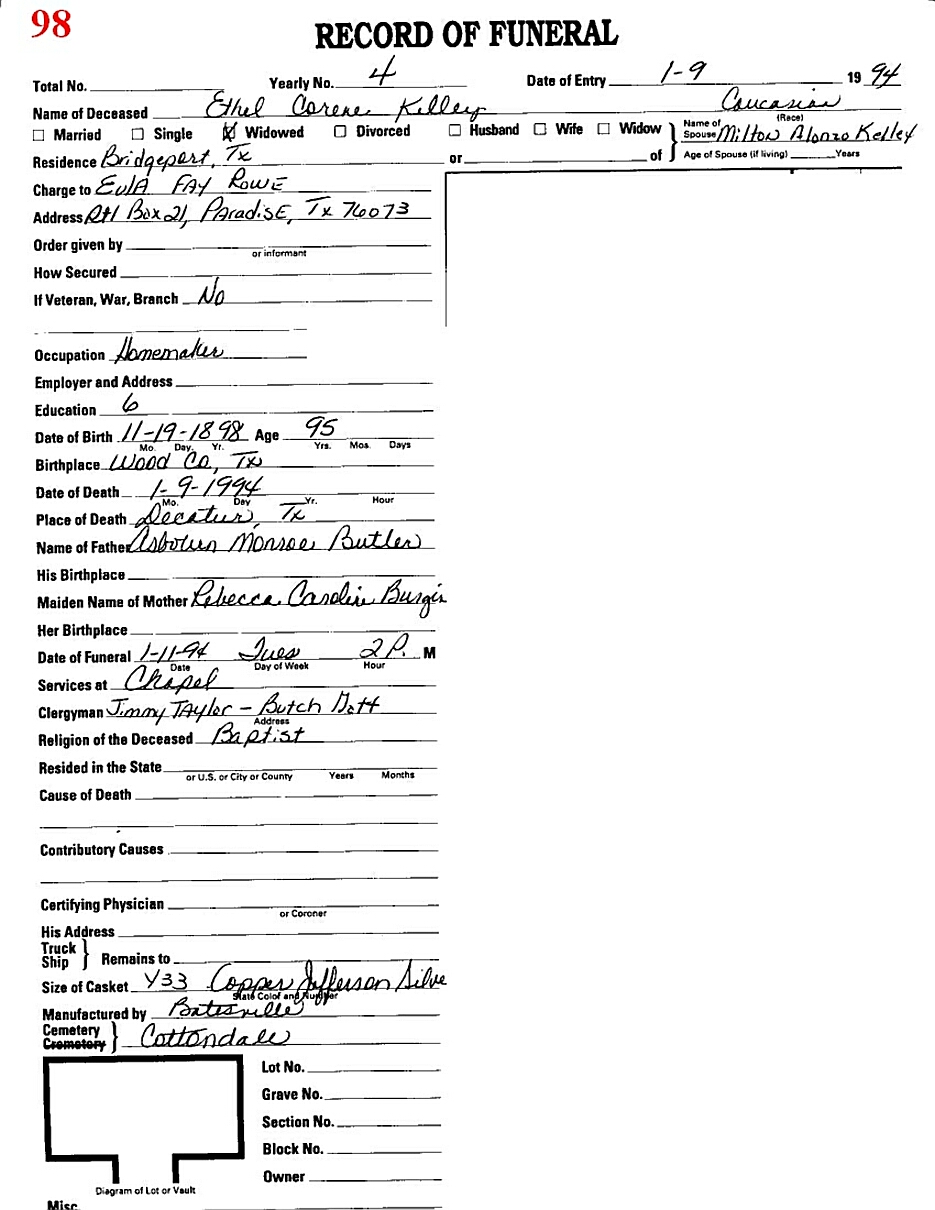 98
RECORD OF FUNERAL
Total No. Yearly No. 4 Date of Entry 1-9 19 94
Name of Deceased Ethel Corene Kelley Caucasian
(Race)
Married Single Widowed Divorced Husband Wife Widow Name of Spouse Milton Alonzo Kelley
Residence Bridgeport, Tx or of Age of Spouse (if living) Years
Charge to EulA FAY ROWE
Address Rt1 Box 21, ParadisE, Tx 76073
Order given by
or informant
How Secured
If Veteran, War, Branch No
Occupation Homemaker
Employer and Address
Education 6
Date of Birth 11-19-1898 Age 95
Mo. Day. Yr. Yrs. Mos. Days
Birthplace Wood Co, Tx
Date of Death 1-9-1994
Mo. Day Yr. Hour
Place of Death Decatur, Tx
Name of Father Monroe Butler
His Birthplace
Maiden Name of Mother Rebecca Caroline Burgin
Her Birthplace
Date of Funeral 1-11-94 Tues 2 P. M
Date Day of Week Hour
Services at Chapel
Clergyman Jimmy TAylor - Butch
Address
Religion of the Deceased Baptist
Resided in the State
or U.S. or City or County Years Months
Cause of Death
Contributory Causes
Certifying Physician
or Coroner
His Address
Truck
Ship } Remains to
Size of Casket Y33 Copper Jefferson Silve
State Color and Number
Manufactured by Batesville
Cemetery
Crematory } Cottondale
Lot No.
Grave No.
Section No.
Block No.
Owner
Diagram of Lot or Vault
Misc.